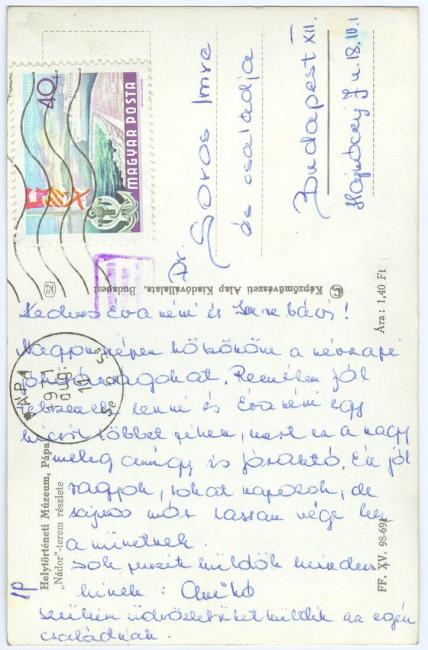 40 f
MAGYAR POSTA
Dr. Soros Imre
és családja
Budapest XII.
Hajnóczy J u. 18. III. 1
Képzőművészeti Alap Kiadóvállalata, Budapest
Ára: 1,40 Ft
Helytörténeti Múzeum, Pápa
„Nádor”-terem részlete
FF. XV. 98-691
PÁPA
Kedves Éva néni és Imre bácsi!
Nagyon szépen köszönöm a névnapi
jókívánságokat. Remélem jól
tetszenek lenni és Éva néni egy
kicsit többet pihen, mert ez a nagy
meleg amúgy is fárasztó. Én jól
vagyok, sokat napozok, de
sajnos már lassan vége lesz
a nyárnak.
Sok puszit küldök minden-
kinek: Anikó
Szüleim üdvözletüket küldik az egész
családnak.